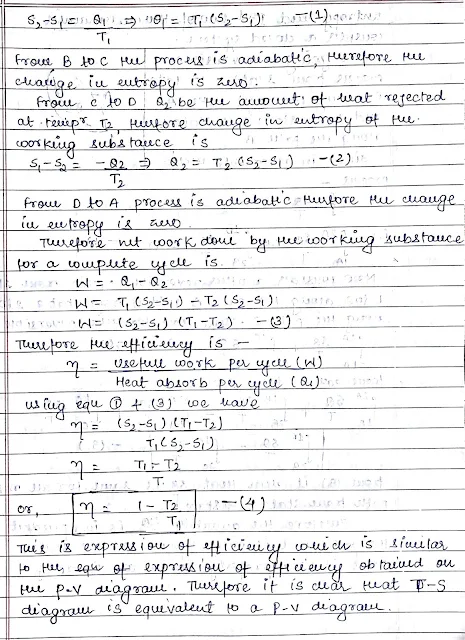 S₂-S₁ = Q₁/T₁ ⇒ Q₁ = T₁(S₂-S₁) -(1)
From B to C the process is adiabatic, therefore the
change in entropy is zero.
From, C to D Q₂ be the amount of heat rejected
at tempr. T₂, therfore change in entropy of the
working substance is
S₁-S₂ = -Q₂/T₂ ⇒ Q₂ = T₂(S₂-S₁) -(2)
From D to A process is adiabatic therfore the change
in entropy is zero
Therefore net work done by the working substance
for a complete cycle is
W = Q₁-Q₂
W = T₁(S₂-S₁) - T₂(S₂-S₁)
W = (S₂-S₁)(T₁-T₂) -(3)
Therefore the efficiency is -
η = usefull work per cycle (W) / Heat absorb per cycle (Q₁)
using equ ① & (3) we have
η = (S₂-S₁)(T₁-T₂) / T₁(S₂-S₁)
η = T₁-T₂ / T₁
or, η = 1 - T₂/T₁ -(4)
This is expression of efficiency which is similar
to the eqn of expression of efficiency obtained on
the p-v diagram. Therefore it is clear that T-S
diagram is equivalent to a p-v diagram.